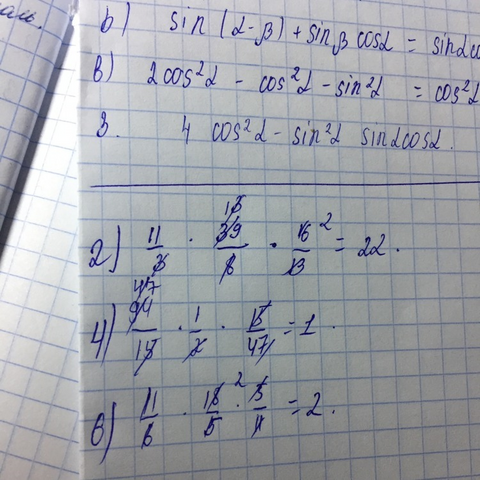 б) sin (α-β) + sinβ cosα = sinα co
в) 2cos²α - cos²α - sin²α = cos²α
3. 4 cos²α - sin²α sinαcosα.
2) 11/3 · 39/8 · 16/13 = 22.
13 2
4) 94/15 · 1/2 · 15/47 = 1.
47
6) 11/6 · 18/5 · 5/11 = 2.
2